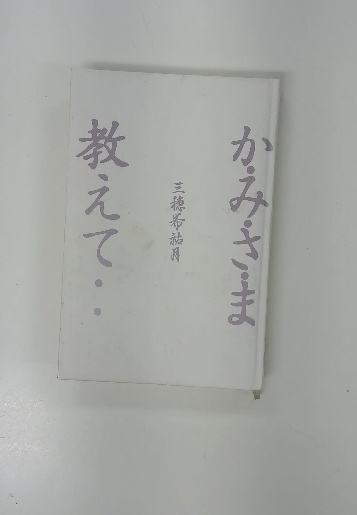 か・み・さ・ま
教えて・・
三穂希祐月